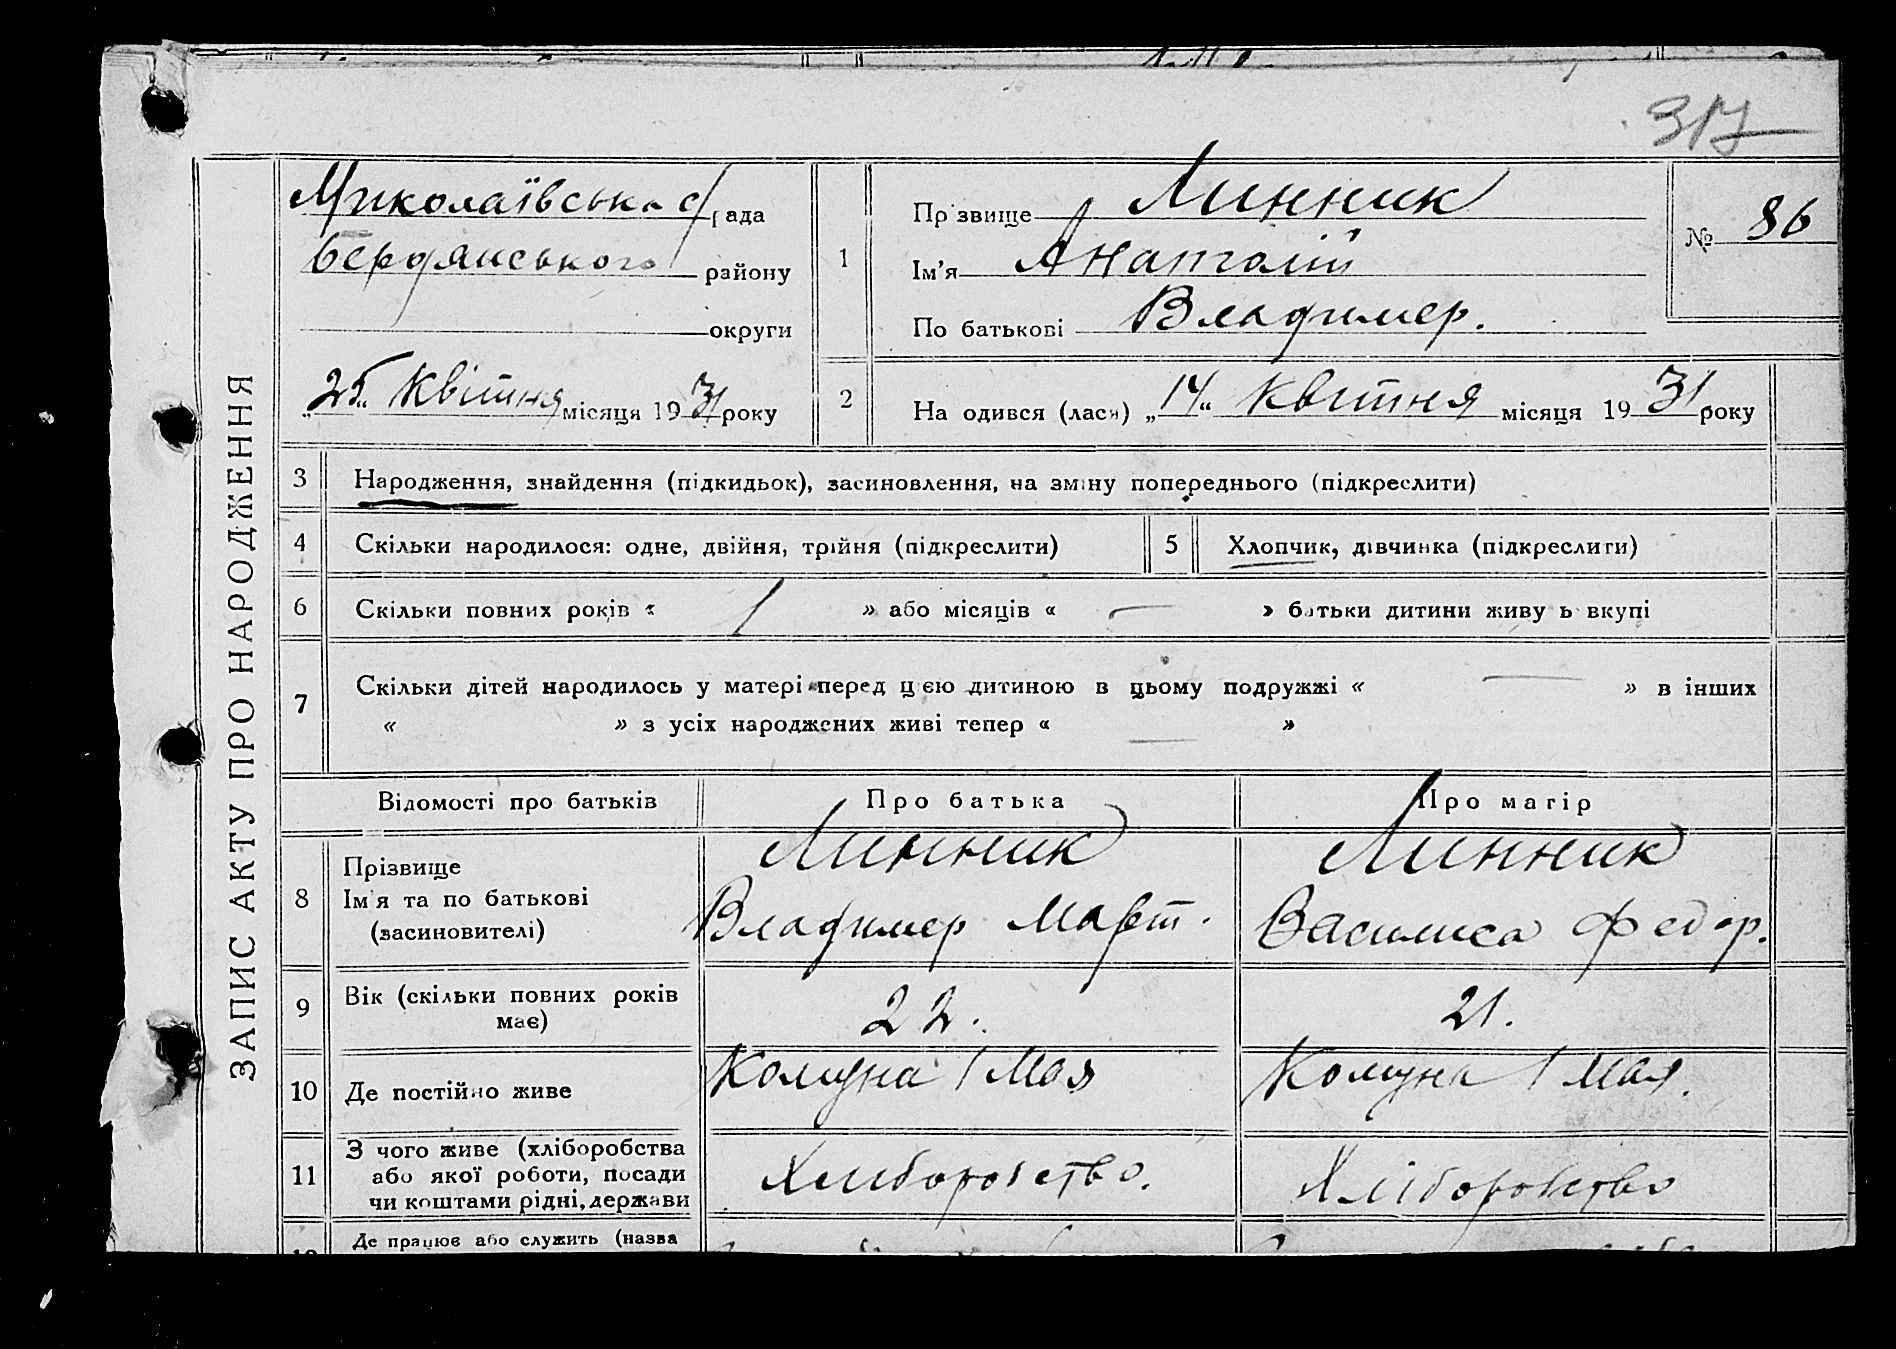 317
ЗАПИС АКТУ ПРО НАРОДЖЕННЯ
Миколаївська с/рада
Бердянського району
округи
„25“ Квітня місяця 1931 року
1
Прізвище Линник
Ім’я Анатолій
По батькові Владимер.
№ 86
2
На одився (лася) „14“ Квітня місяця 1931 року
3 Народження, знайдення (підкидьок), засиновлення, на зміну попереднього (підкреслити)
4 Скільки народилося: одне, двійня, трійня (підкреслити)
5 Хлопчик, дівчинка (підкреслити)
6 Скільки повних років « 1 » або місяців « — » батьки дитини живу ь вкупі
7 Скільки дітей народилось у матері перед цією дитиною в цьому подружжі « — » в інших
« » з усіх народжених живі тепер « — »
Відомості про батьків Про батька Про матір
8 Прізвище
Ім’я та по батькові
(засиновителі)
Линник
Владимер Март.
Линник
Василиса Федор.
9 Вік (скільки повних років
має)
22.
21.
10 Де постійно живе
Комуна 1 Мая
Комуна 1 Мая.
11 З чого живе (хліборобства
або якої роботи, посади
чи коштами рідні, держави
Хлиборобство.
Хліборобство
Де працює або служить (назва